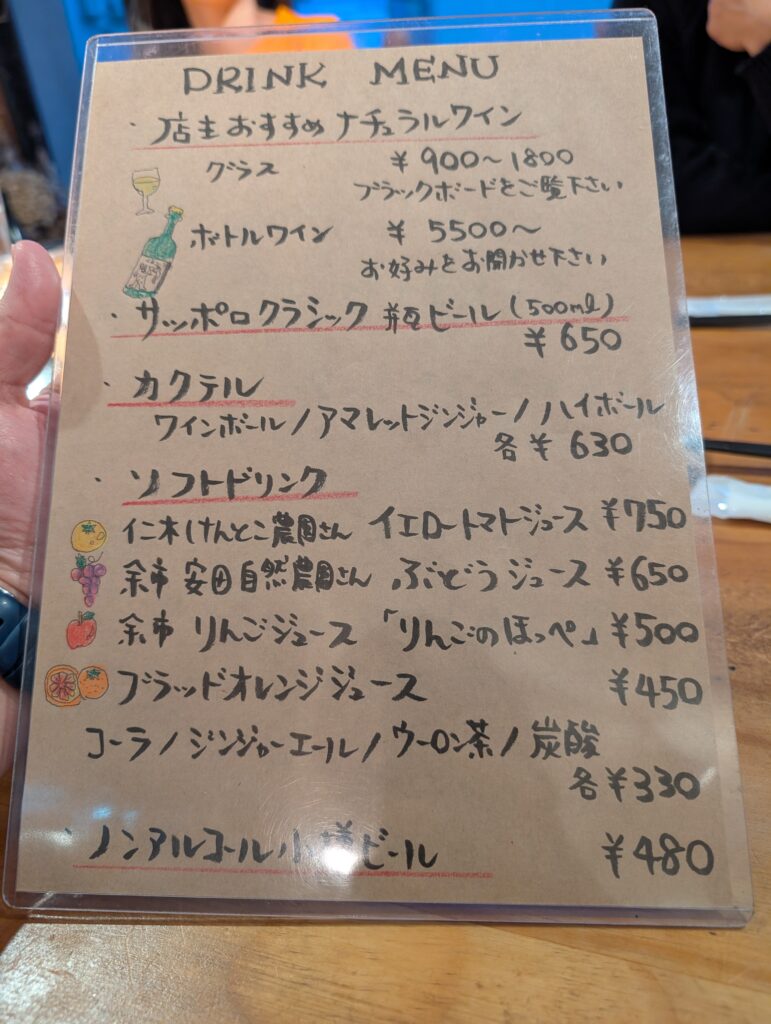 DRINK MENU
・店主おすすめ ナチュラルワイン
グラス ¥900～1800
ブラックボードをご覧下さい
ボトルワイン ¥5500～
お好みをお聞かせ下さい
・サッポロクラシック 瓶ビール (500ml)
¥650
・カクテル
ワインボール / アマレットジンジャー / ハイボール
各¥630
・ソフトドリンク
仁木けんとこ農園さん イエロートマトジュース ¥750
余市 安田自然農園さん ぶどうジュース ¥650
余市 りんごジュース 「りんごのほっぺ」 ¥500
ブラッドオレンジジュース ¥450
コーラ / ジンジャーエール / ウーロン茶 / 炭酸
各¥330
・ノンアルコール小樽ビール ¥480